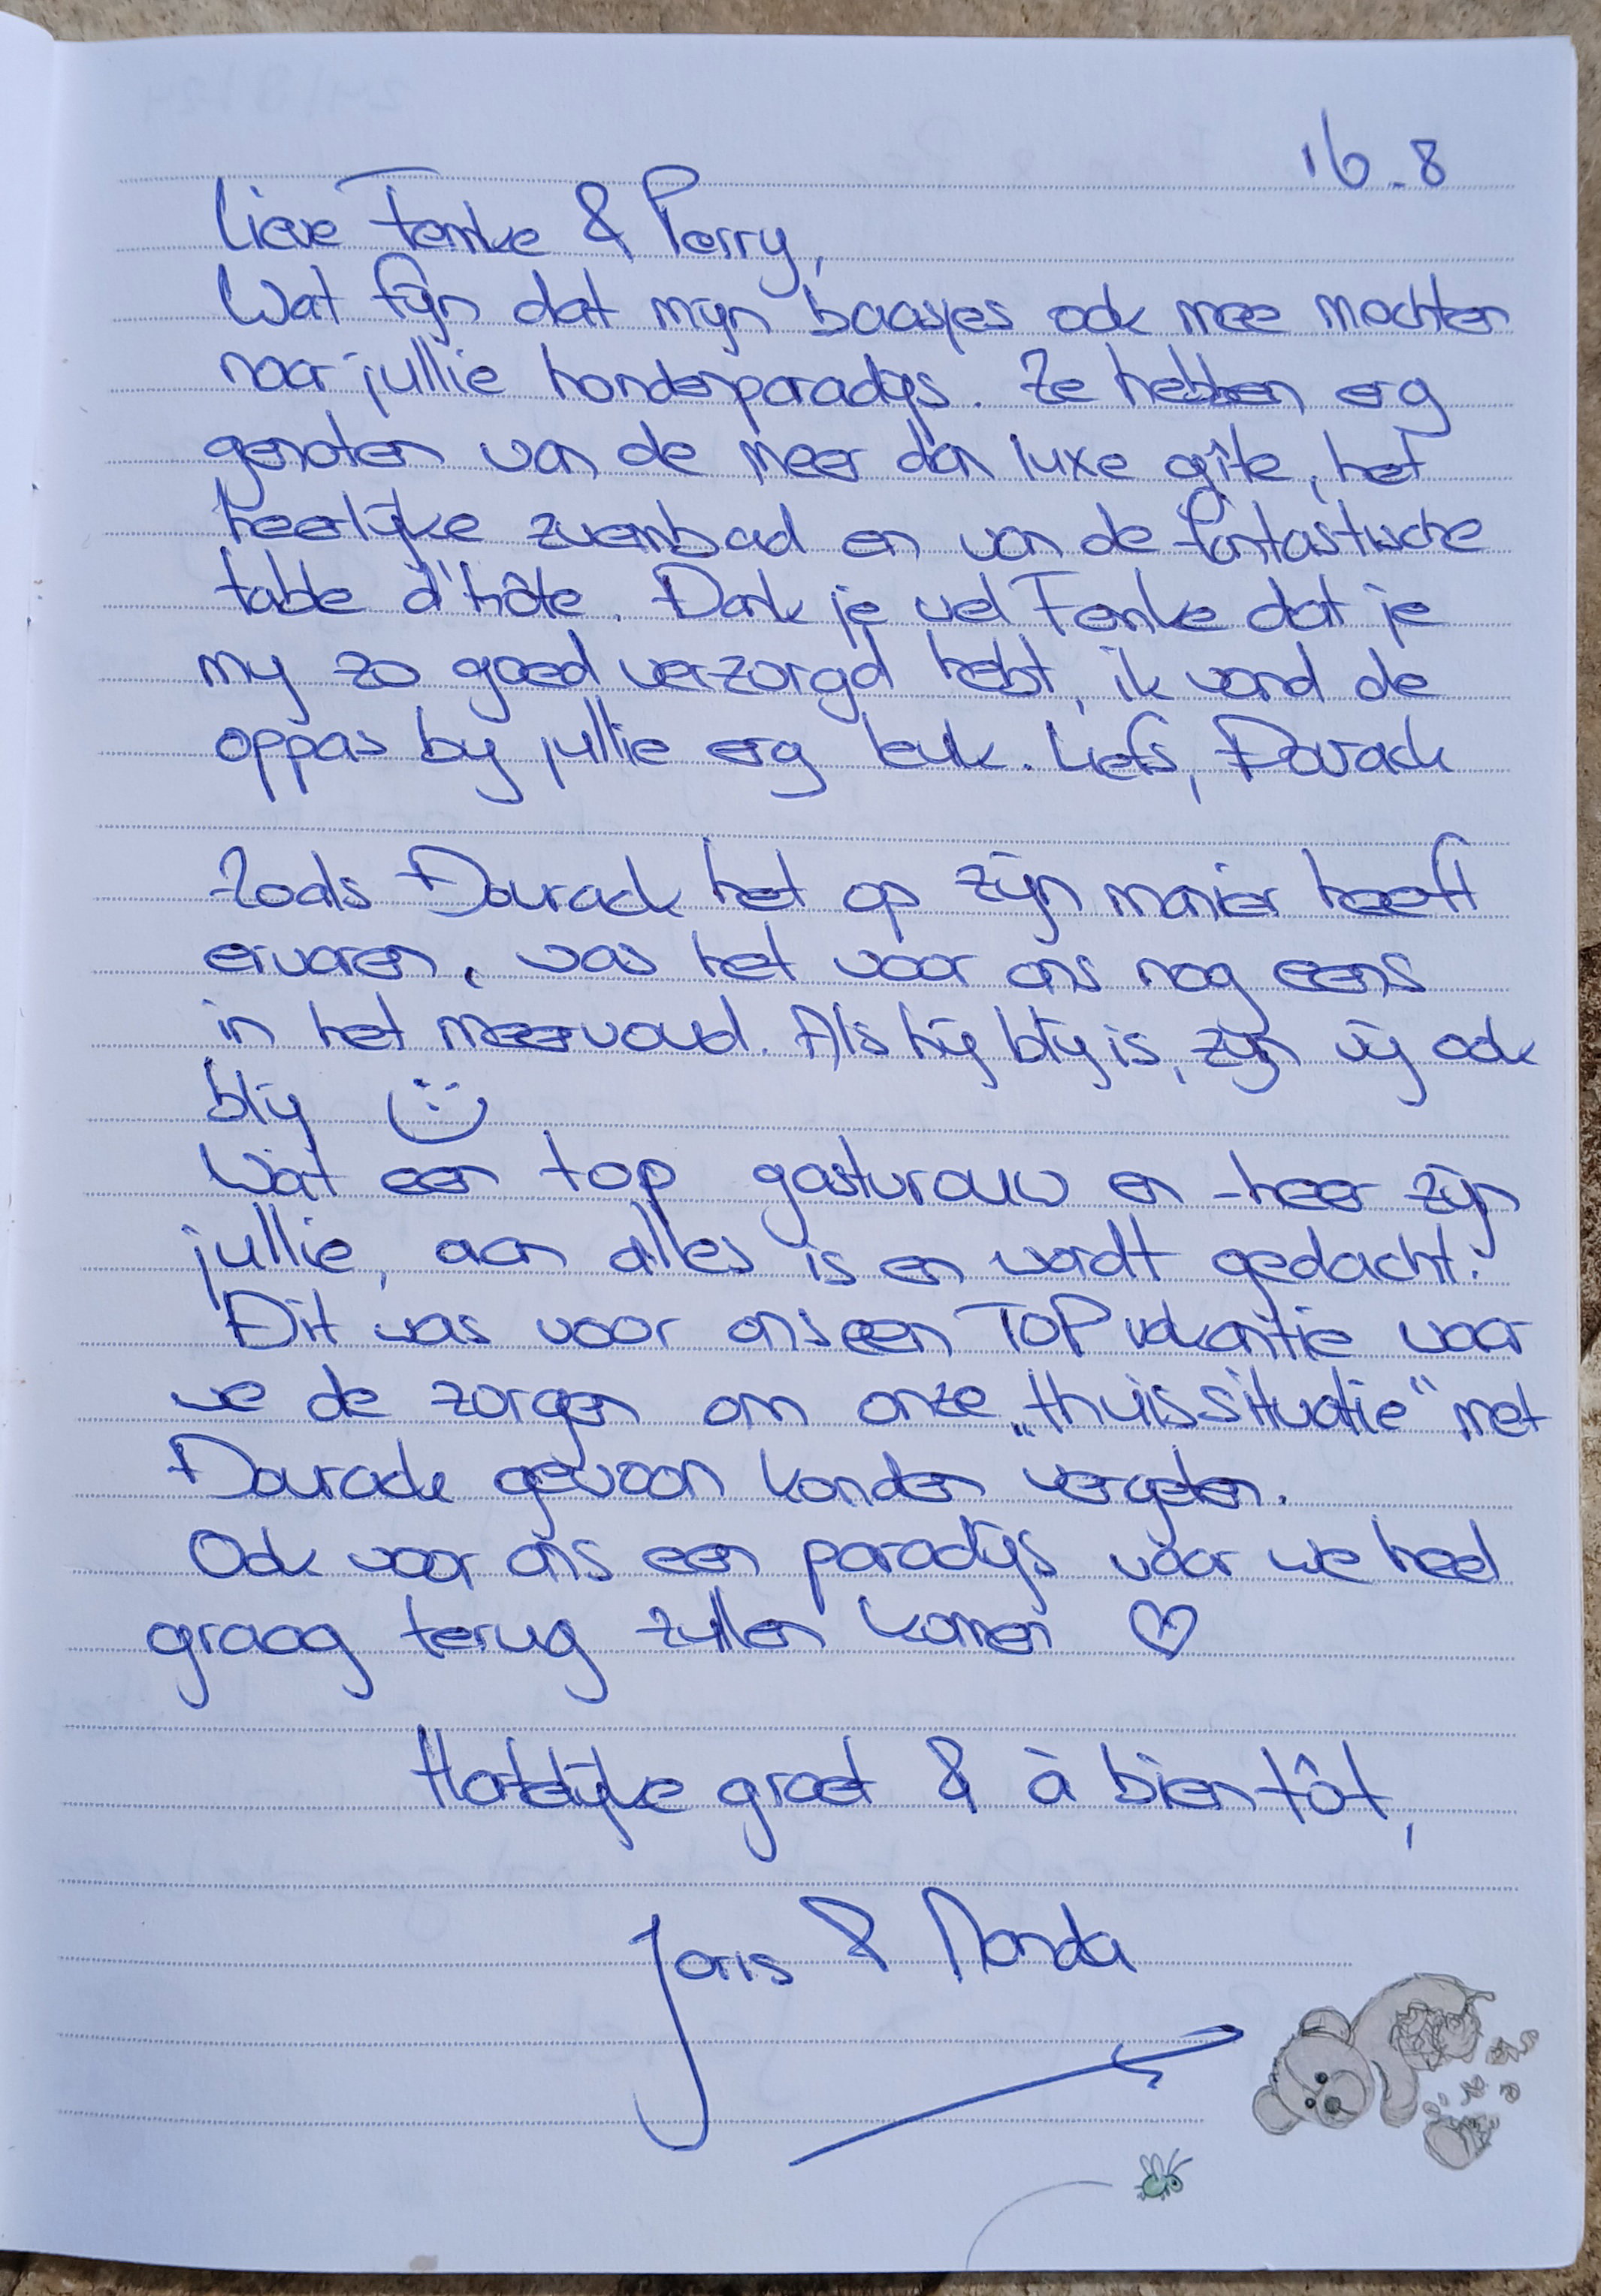 16-8
Lieve Femke & Perry,
Wat fijn dat mijn baasjes ook mee mochten
naar jullie hondenparadijs. Ze hebben erg
genoten van de meer dan luxe gîte, het
heerlijke zwembad en van de fantastische
table d'hôte. Dank je wel Femke dat je
mij zo goed verzorgd hebt, ik vond de
oppas bij jullie erg leuk. Liefs, Dourack
Zoals Dourack het op zijn manier heeft
ervaren, was het voor ons nog eens
in het meervoud. Als hij blij is, zijn wij ook
blij
Wat een top gastvrouw en -heer zijn
jullie, aan alles is en wordt gedacht!
Dit was voor ons een TOP vakantie waar
we de zorgen om onze „thuissituatie" met
Dourack gewoon konden vergeten.
Ook voor ons een paradijs waar we heel
graag terug zullen komen ♡
Hartelijke groet & à bientôt,
Joris & Manda